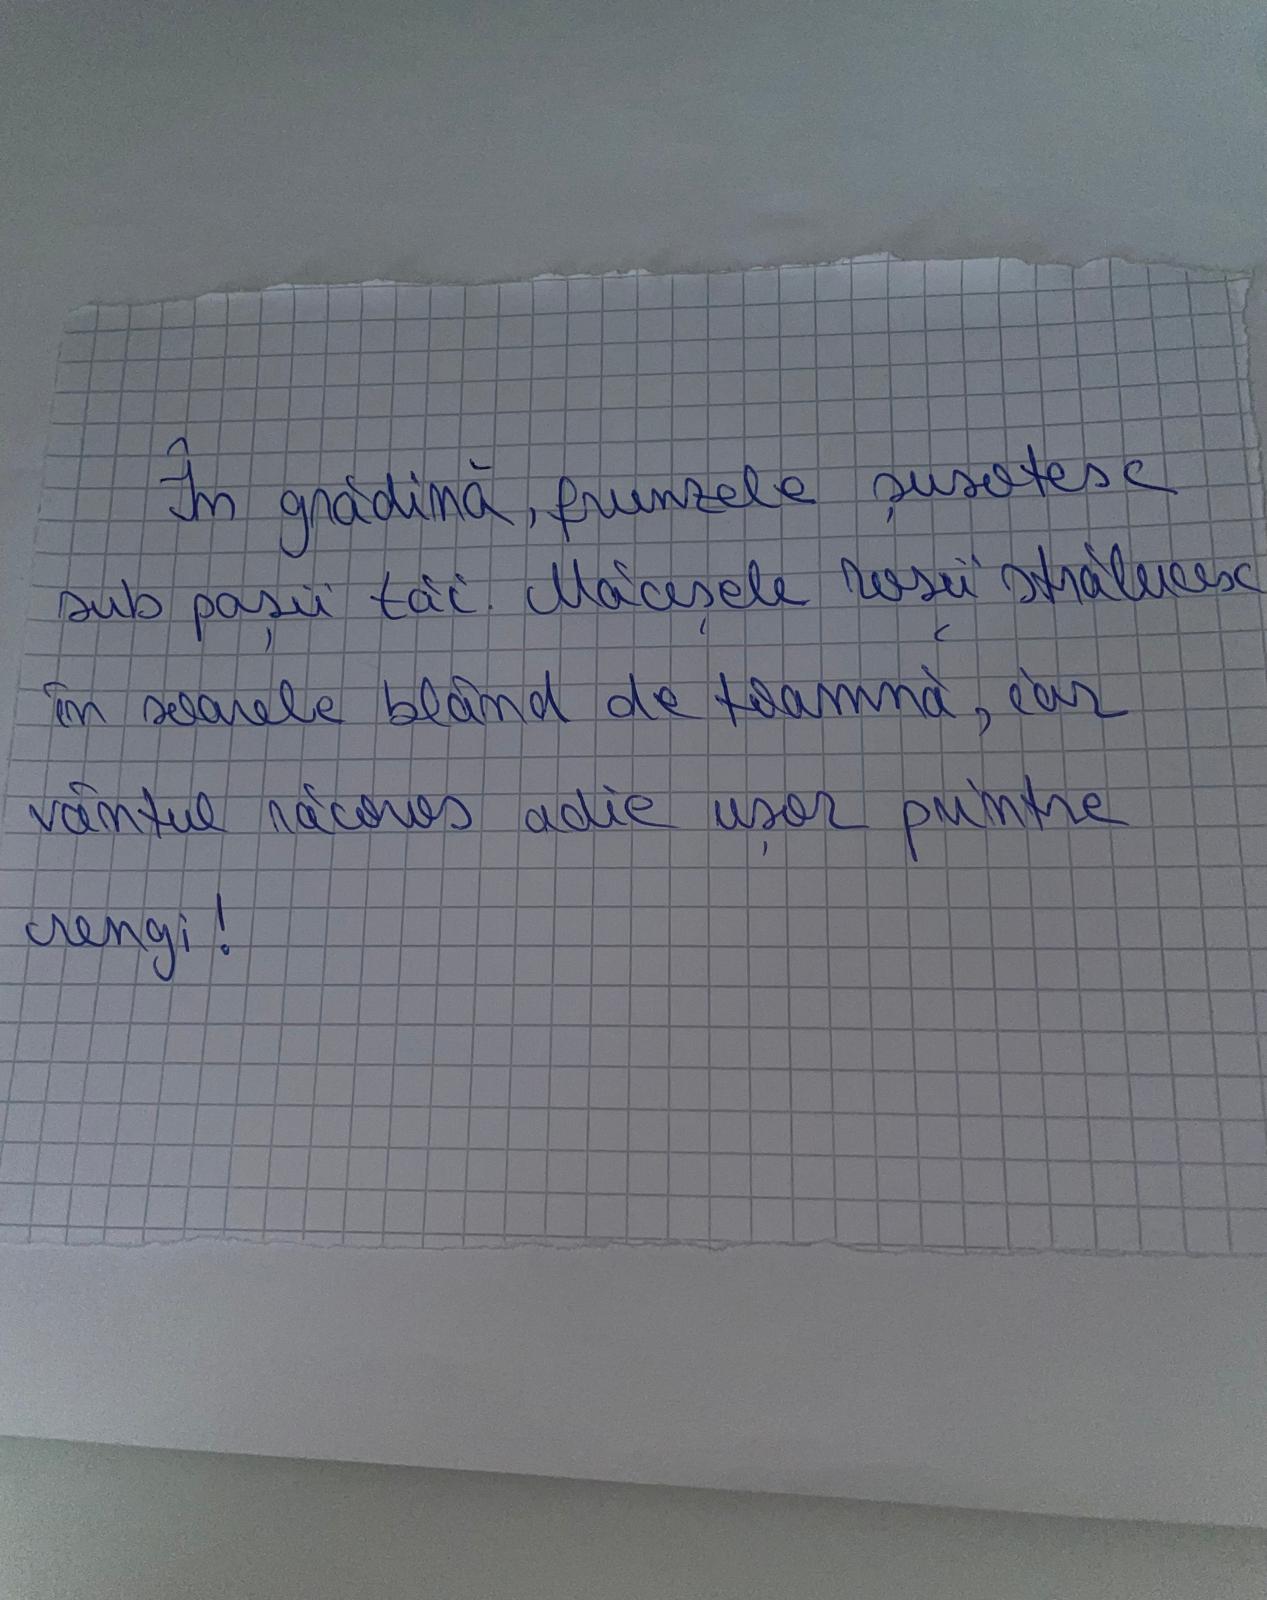 În grădină, frunzele șușotesc
sub pașii tăi. Măceșele roșii strălucesc
în soarele blând de toamnă, iar
vântul răcoros adie ușor printre
crengi!